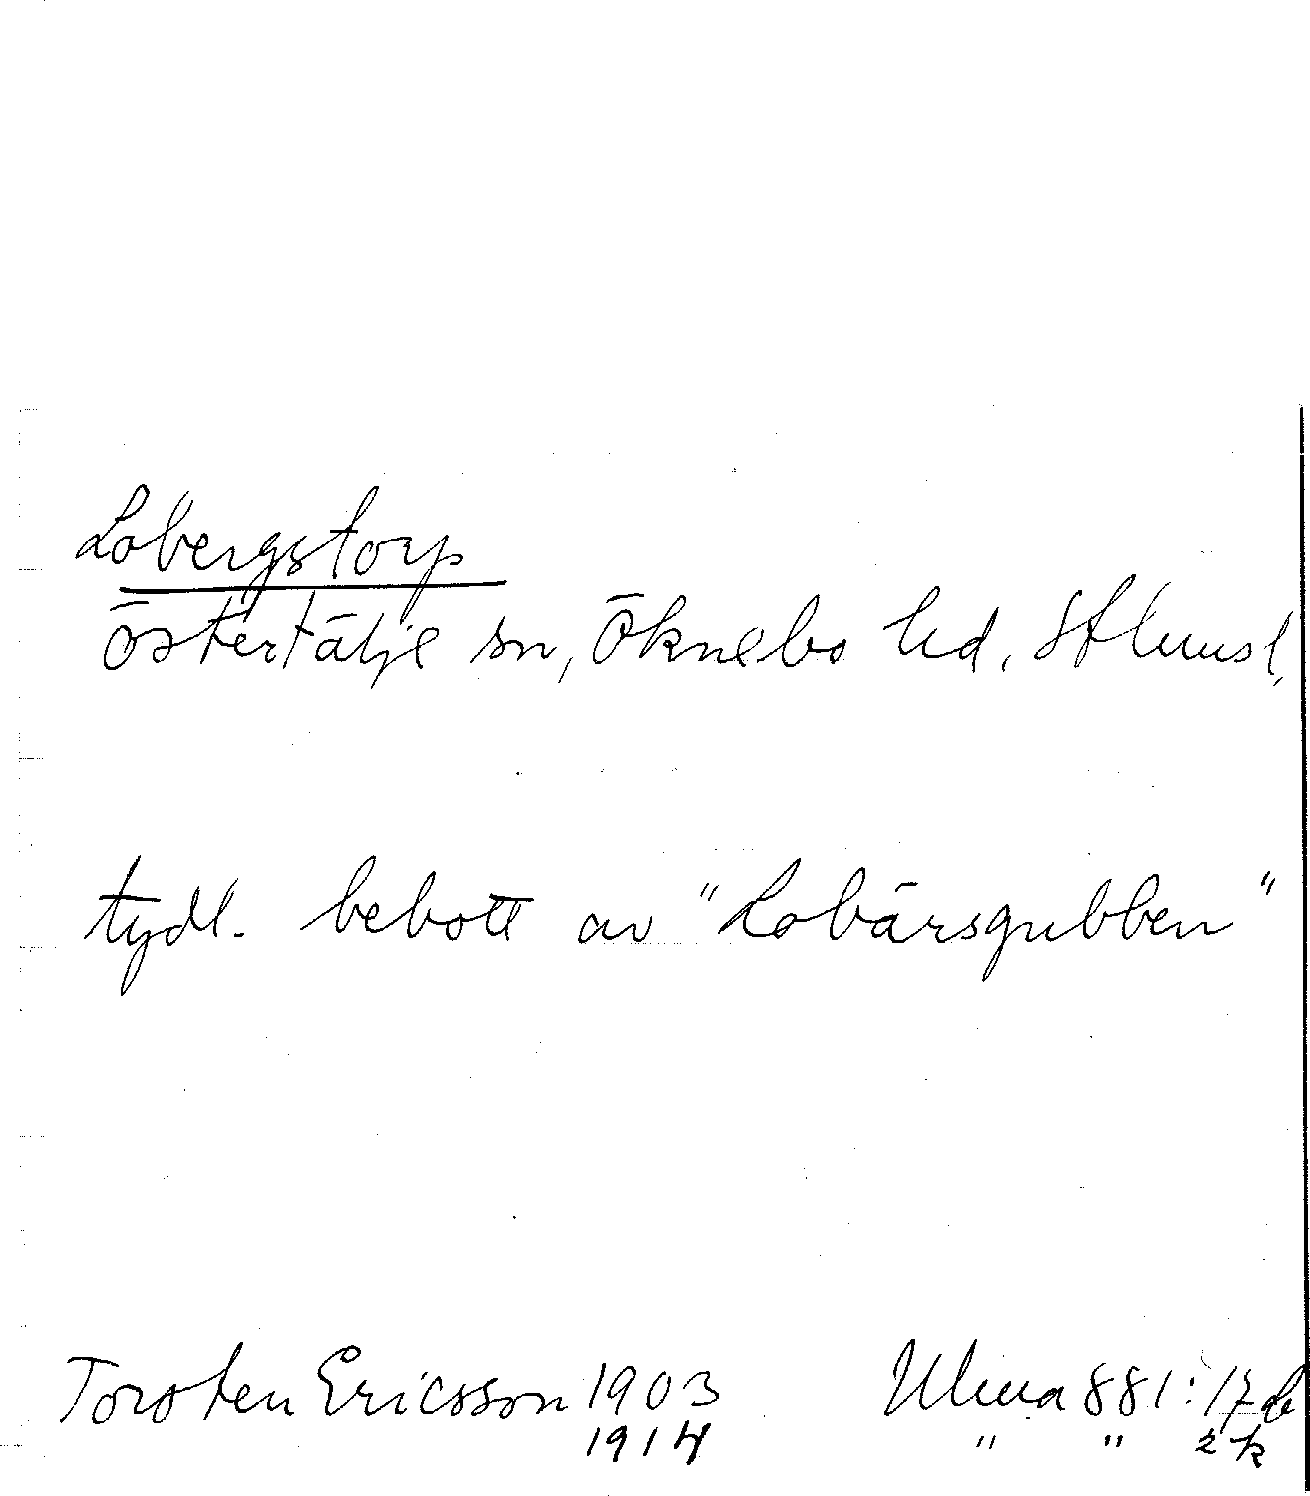 Lobergstorp
Östertälje sn, Öknebo hd, Sthmsl,
tydl. bebott av "Lobärsgubben"
Torsten Ericsson 1903 Ulma 881:17 de
1914 " " 2 k